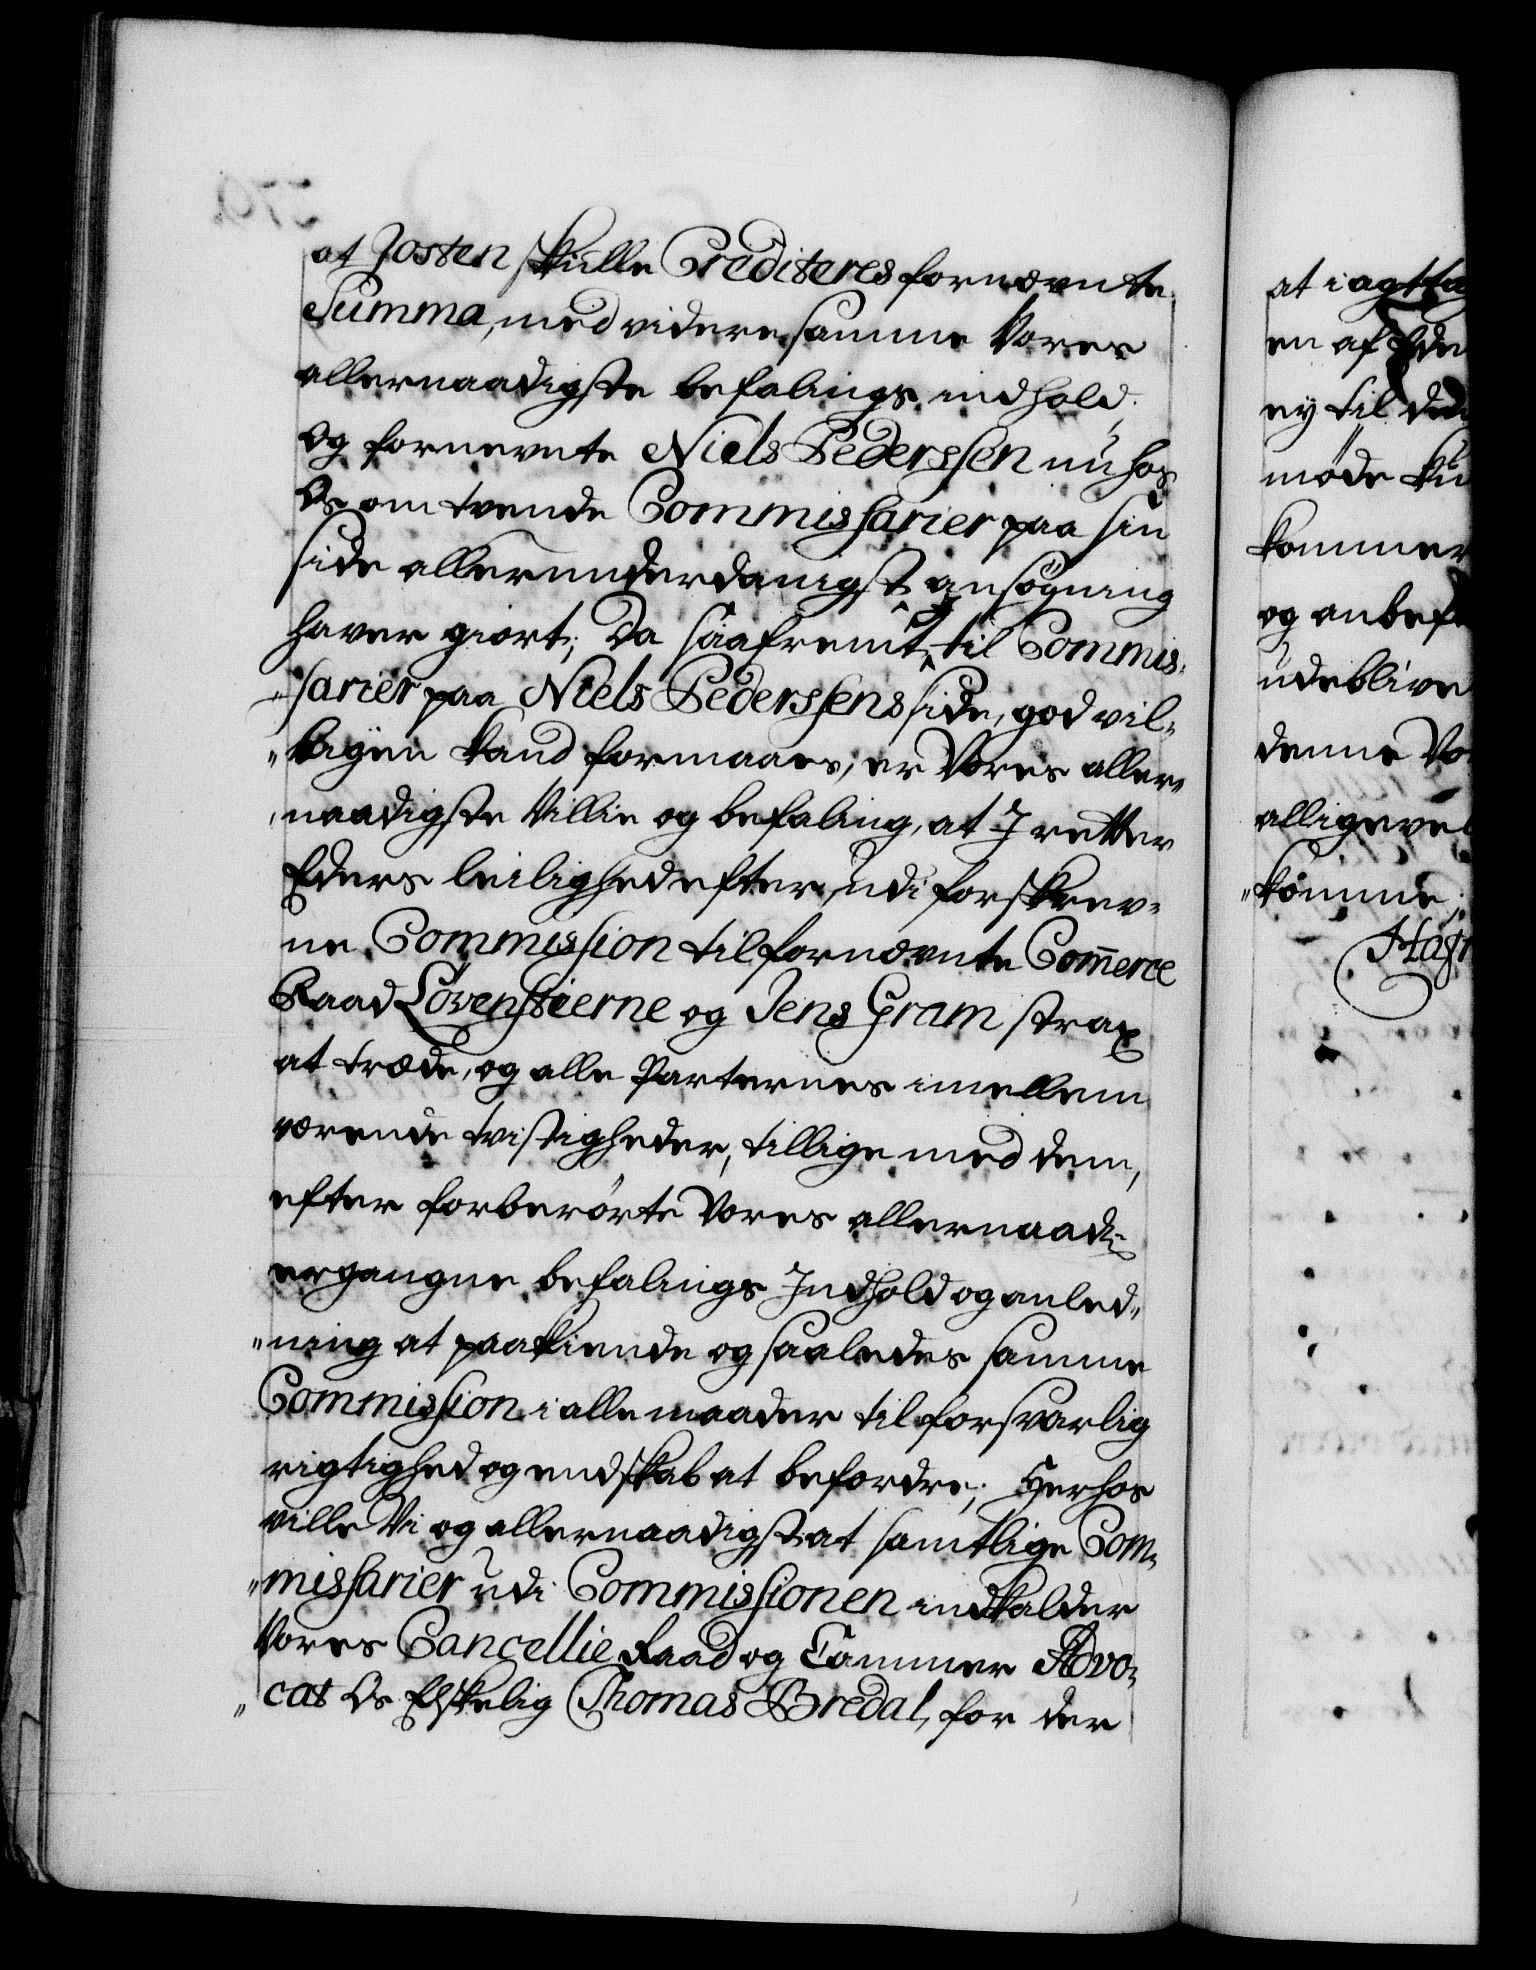 at Josten skulle Crediteres fornævnte
Summa, med videre samme Vores
allernaadigste befalings indhold.
Og fornevnte Niels Pederssen nu hos
Os om tvende Commissarier paa sin
side allerunderdanigst ansøgning
haver giort; Da saafremt I til Commis-
sarier paa Niels Pederssens side, god vil-
ligen kand formaaes, er Vores aller-
naadigste Villie og befaling, at I retter
Eders leilighed efter, udi forskrev-
ne Commission til fornævnte Com̄erce
Raad Lövenstierne og Jens Gram strax
at træde, og alle Parternes imellem
værende tvistigheder, tillige med dem,
efter forberørte Vores allernaad:
ergangne befalings Indhold og anled-
ning at paakiende og saaledes samme
Commission i alle maader til forsvarlig
rigtighed og endskab at befordre; Herhos
ville Vi og allernaadigst at samtlige Com-
missarier udi Commissionen indkalder
Vores Cancellie Raad og Cammer Advo-
cat Os Elskelig Thomas Bredal, for der
at iagttag
en af Ede
ey til
møde ku
kommer
og anbef
udeblive
denne Vo
alligevel
komme;
Hafn